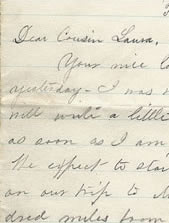 Dear Cousin Laura,
Your nice
yesterday - I was
will write a little
as soon as I am
We expect to star
on our trip to
dred miles from